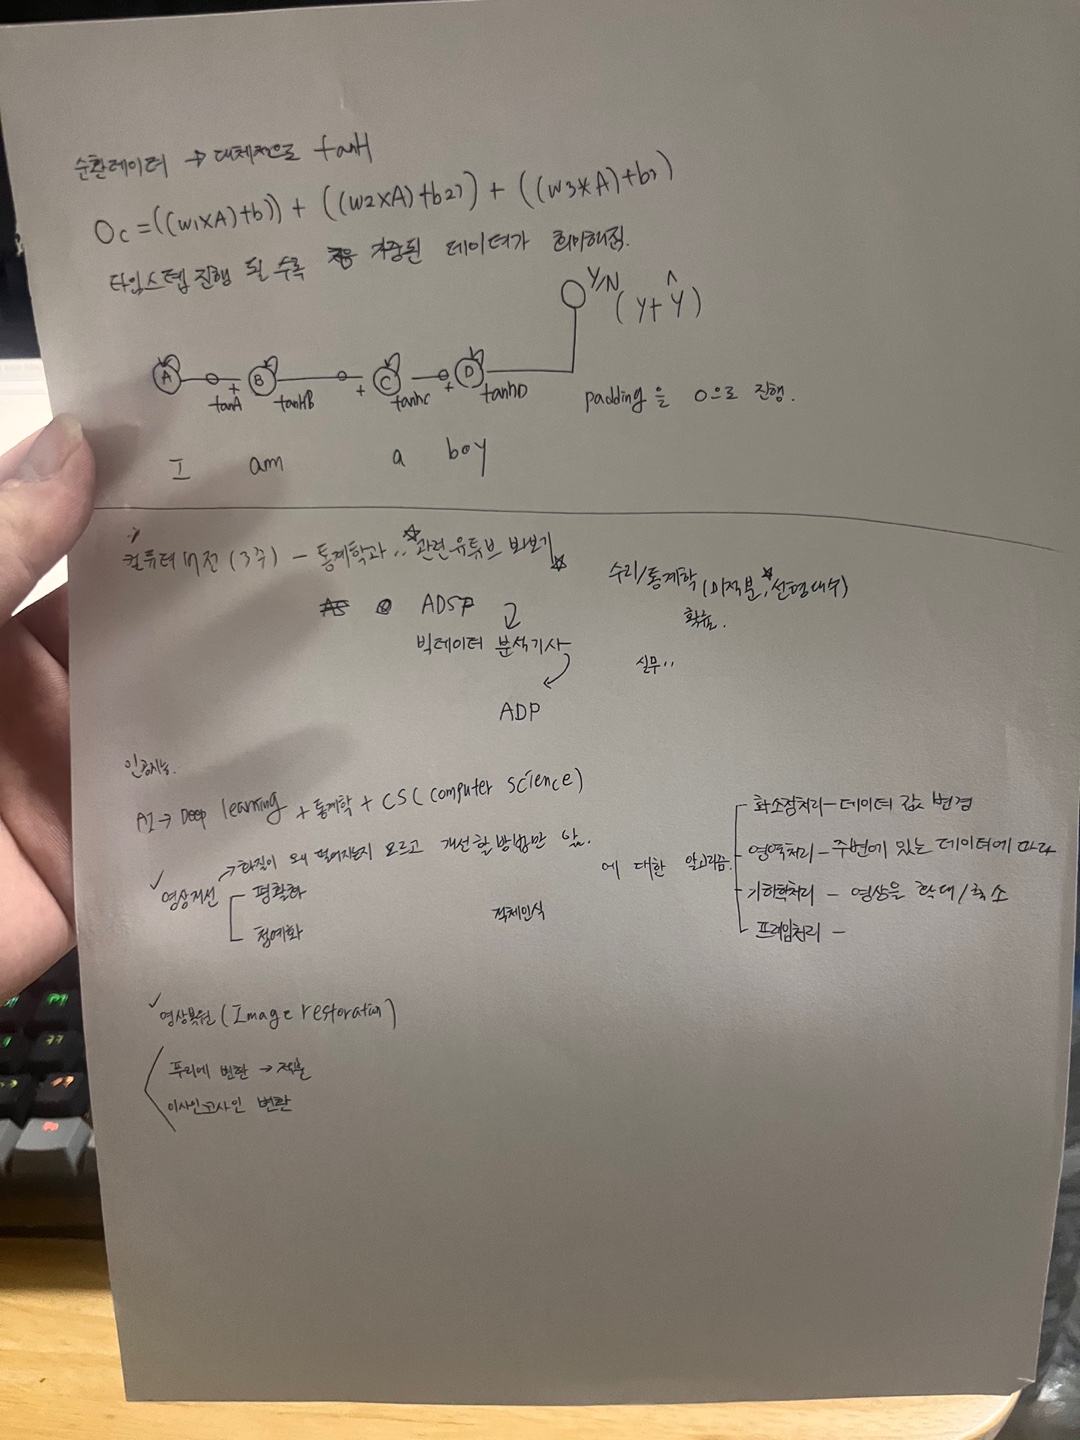 순환레이터 → 대체적으로 tanH
Oc = ((w1×A)+b)) + ((w2×A)+b2)) + ((w3×A)+b3)
타임스텝 진행 될 수록 가중된 데이터가 희미해짐.
Y/N
(Y+Ŷ)
A + B + C + D
tanA tanHB tanhc tanhD
padding을 0으로 진행.
I am a boy
컴퓨터 비전 (3주) - 통계학과.. ☆관련 유튜브 봐보기☆
수리/통계학 (미적분, ☆선형대수)
확률.
ADSP
빅데이터 분석기사
실무..
ADP
인공지능.
AI → Deep learning + 통계학 + CS (computer science)
→ 화질이 왜 떨어지는지 모르고 개선할 방법만 앎.
✓ 영상개선
평활화
첨예화
객체인식
에 대한 알고리즘.
화소점처리 - 데이터 값 변경
영역처리 - 주변에 있는 데이터에 따라
기하학처리 - 영상을 확대/축소
프레임처리 -
✓ 영상복원 (Image restoration)
푸리에 변환 → 적분
이산코사인 변환